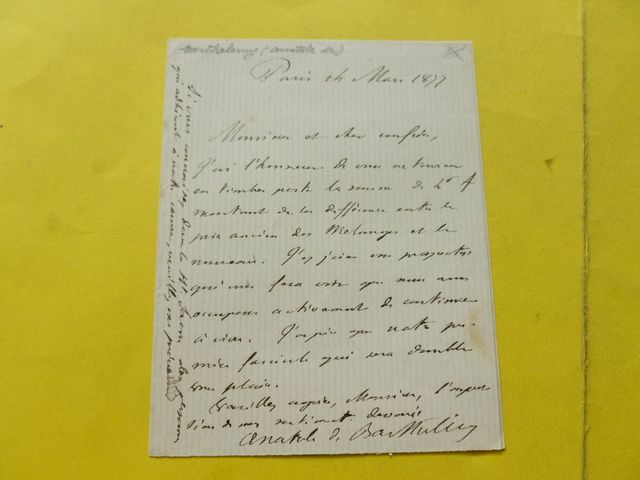 Barthélemy (Anatole de)
Paris 14 Mars 1877
Monsieur et cher confrère,
J'ai l'honneur de vous retourner
en timbres poste la somme de 4f
montant de la différence entre le
prix ancien des Mélanges et le
nouveau. J'y joins un prospectus
qui vous fera voir que nous nous
occupons activement de continuer
à vivre. J'espère que notre pre-
mier fascicule qui sera double
vous plaira.
Veuillez agréer, Monsieur, l'expres-
sion de mes sentiments dévoués
Anatole de Barthélemy
Si vous connaissez dans la Hte Saône des personnes
qui adhèrent à notre œuvre, veuillez